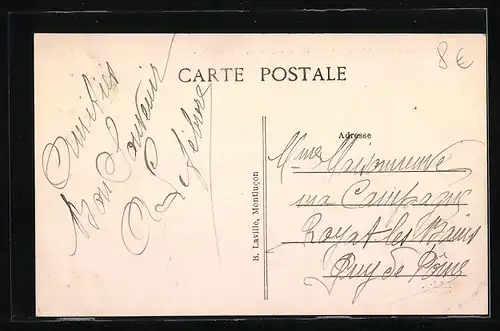 8€
CARTE POSTALE
Amitiés
Bon Souvenir
Lefebvre
B. Laville, Montluçon
Adresse
Mme Maisonneuve
ma Campagne
Royat les Bains
Puy de Dôme